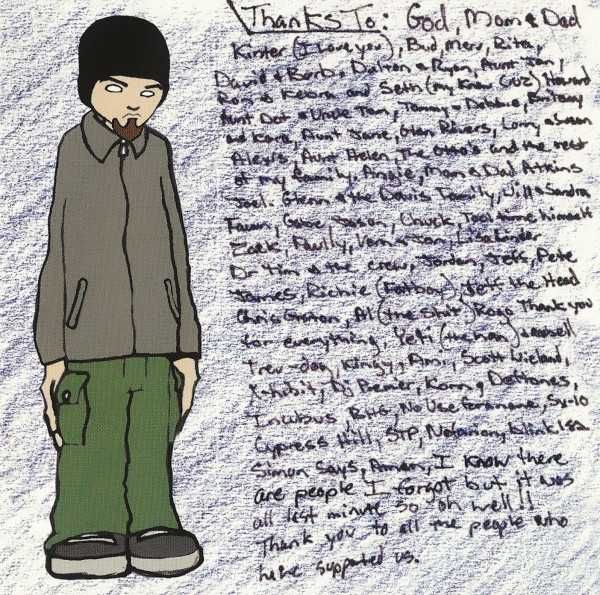 Thanks To: God, Mom & Dad
Kinter (I love you), Bud, Merv, Rita,
David & Barb, Dalton & Ryan, Aunt Jan,
Ron & and Seth (my Guz) Howard
Aunt Dot & Uncle Tom, Tommy & Debbie, Brittany
and Kara, Aunt Jane, Glen Rivers, Lorry &
Alexis, Aunt Helen, The Otto's and the rest
of my family, Angie, Mom & Dad Atkins
Joel, Glenn & the Davis Family, Will & Sandra
Fawn, Gabe, Jason, Chuck, himself
Zack, Paully, Vern & Jan, Lisa
Dr Tim & the crew, Jordan, Jeff, Pete
James, Richie (Fatboy), Jeff the Head
Chris, Al (the Shit) Thank you
for everything, Yeti (the man)
Trev-dog, Kingy, Ami, Scott Wieland,
X-hibit, Dj Premier, Korn & Deftones,
Incubus, No Use for a name, Sx-10
Cypress Hill, STP, Notorian, Blink 182
Simon Says, Amen, I know there
are people I forgot but it was
all last minute so oh well!!
Thank you to all the people who
have supported us.